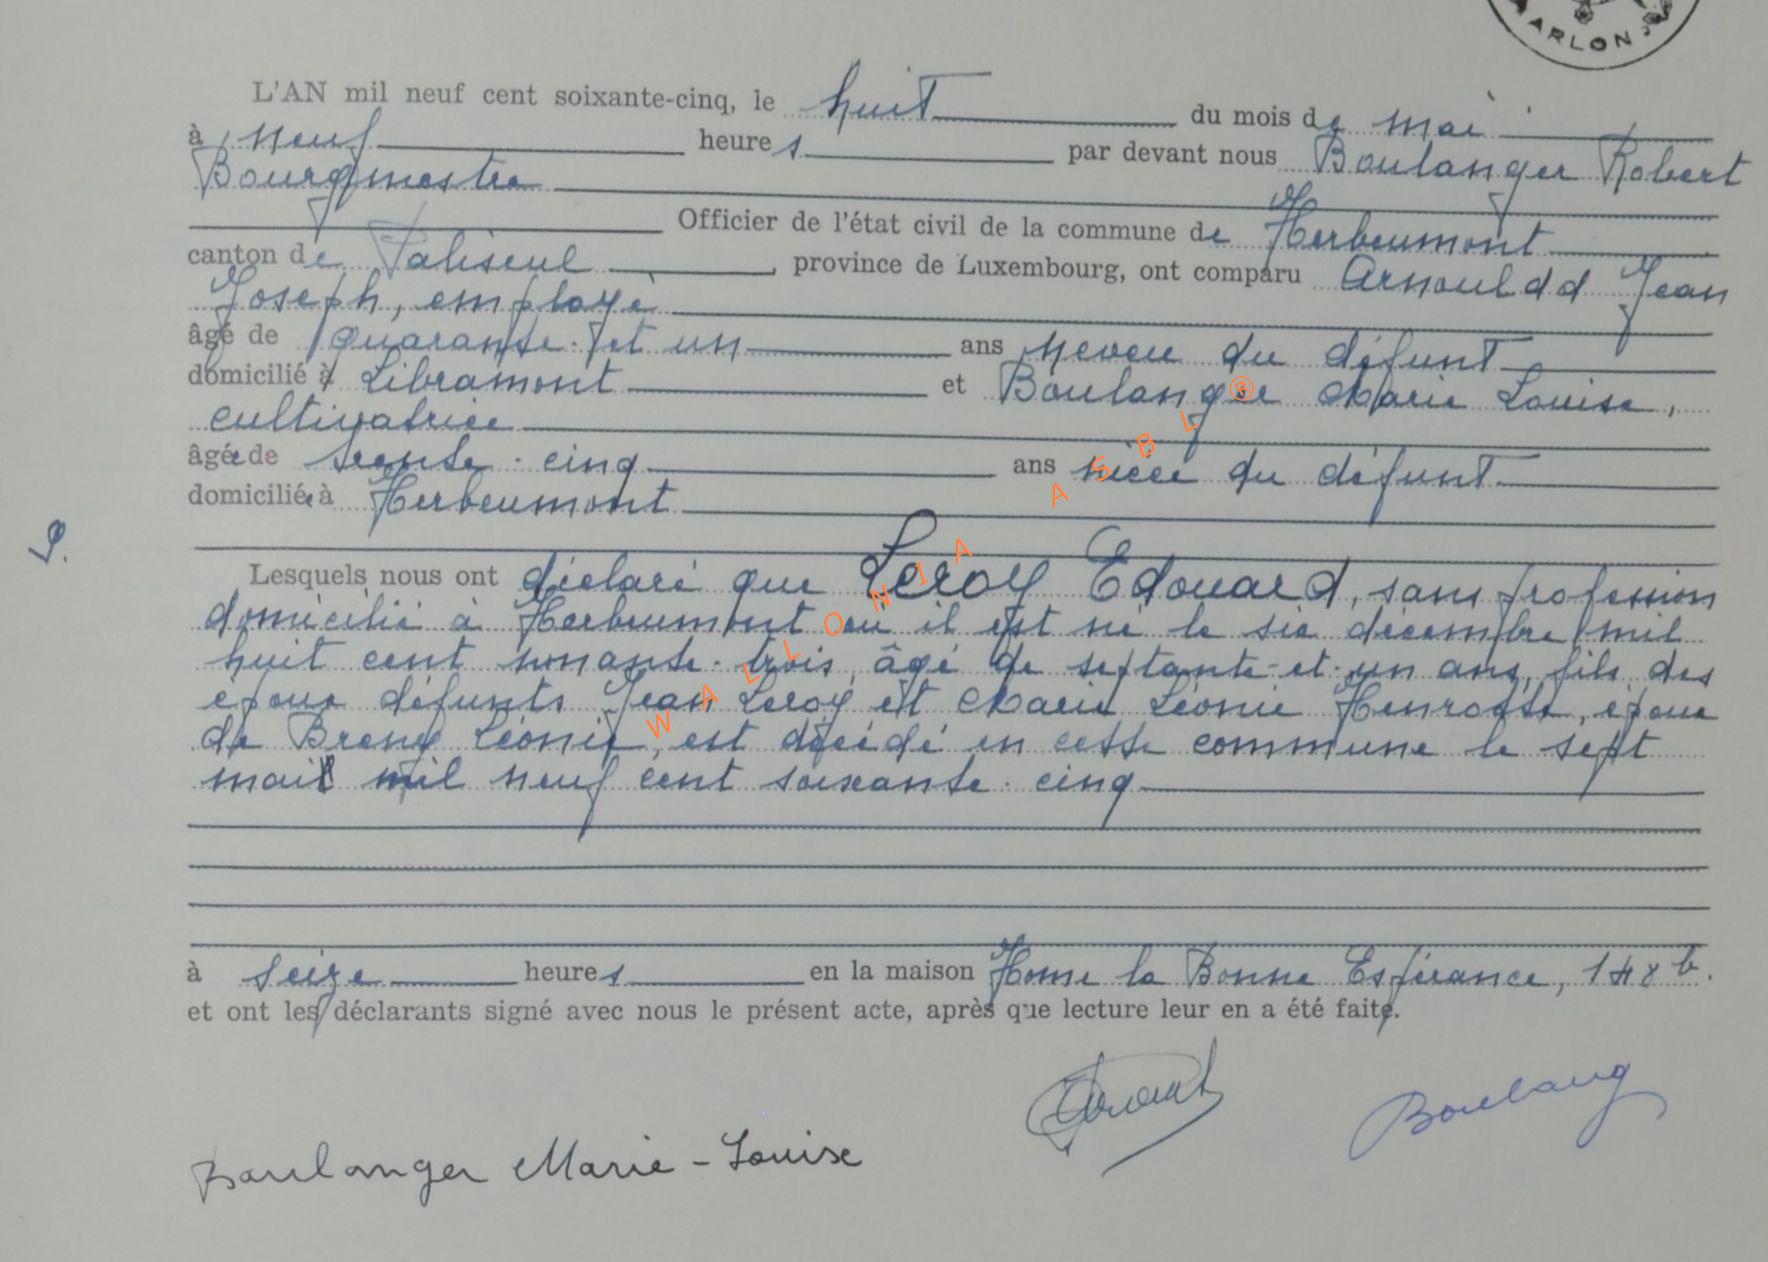 AARLON
L'AN mil neuf cent soixante-cinq, le huit du mois de mai
à neuf heures par devant nous Boulanger Robert
Bourgmestre
Officier de l'état civil de la commune de Herbeumont
canton de Paliseul, province de Luxembourg, ont comparu Arnould Jean
Joseph, employé
âgé de quarante-et un ans neveu du défunt
domicilié à Libramont et Boulanger Marie Louise,
cultivatrice
âgée de trente-cinq ans nièce du défunt
domiciliée à Herbeumont
Lesquels nous ont déclaré que Leroy Edouard, sans profession
domicilié à Herbeumont où il est né le six décembre mil
huit cent nonante-trois, âgé de septante-et-un ans, fils des
époux défunts Jean Leroy et Marie Léonie Henrotte, époux
de Léonie, est décédé en cette commune le sept
mai mil neuf cent soixante-cinq
à seize heures en la maison Home la Bonne Espérance, 148b.
et ont les déclarants signé avec nous le présent acte, après que lecture leur en a été faite.
Boulanger Marie-Louise
Boulang
WALLONIA ASBL ®